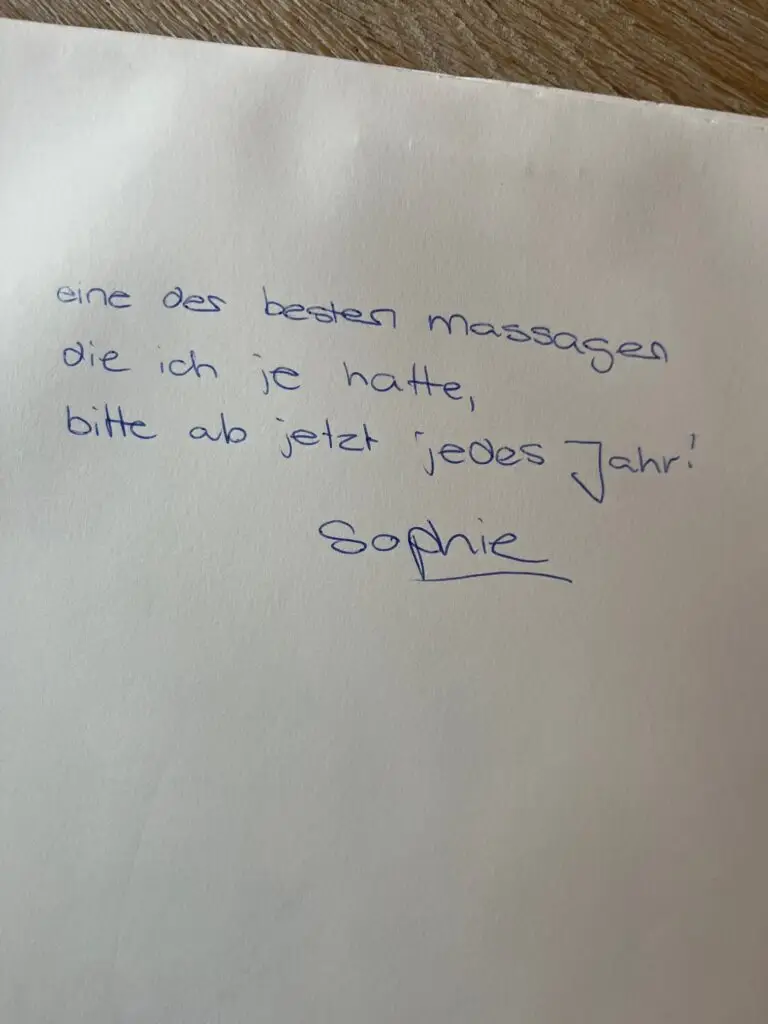 eine der besten Massagen
die ich je hatte,
bitte ab jetzt jedes Jahr!
Sophie